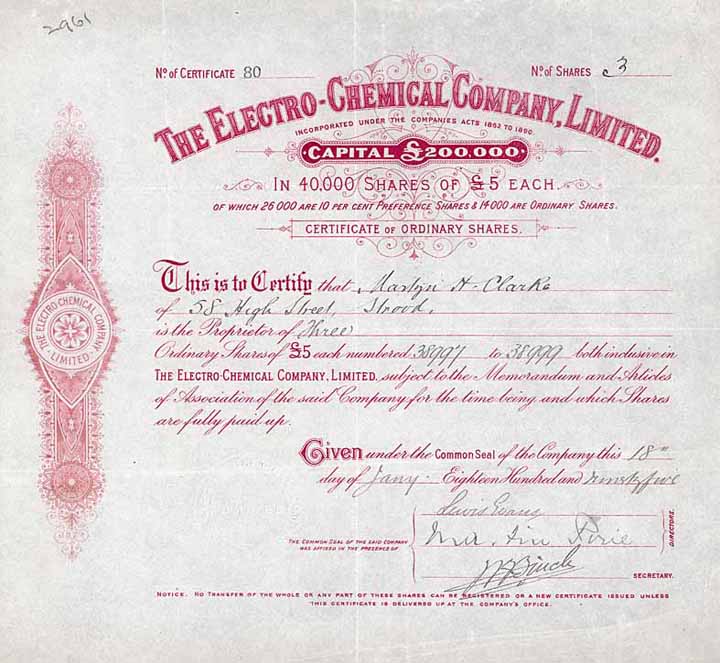 2961
No. of Certificate 80 No. of Shares 3
THE ELECTRO-CHEMICAL COMPANY, LIMITED.
INCORPORATED UNDER THE COMPANIES ACTS 1862 TO 1890.
CAPITAL £200,000.
IN 40,000 SHARES OF £5 EACH.
OF WHICH 26000 ARE 10 PER CENT PREFERENCE SHARES & 14000 ARE ORDINARY SHARES.
CERTIFICATE OF ORDINARY SHARES.
THE ELECTRO-CHEMICAL COMPANY LIMITED.
This is to Certify that H. Clarke
of 58 High Street, Strood,
is the Proprietor of Three
Ordinary Shares of £5 each numbered 38997 to 38999 both inclusive in
THE ELECTRO-CHEMICAL COMPANY, LIMITED, subject to the Memorandum and Articles
of Association of the said Company for the time being and which Shares
are fully paid up.
Given under the Common Seal of the Company this 18th
day of Jany. Eighteen Hundred and ninety five
Lewis Evans
THE COMMON SEAL OF THE SAID COMPANY
WAS AFFIXED IN THE PRESENCE OF
DIRECTORS.
SECRETARY.
NOTICE. NO TRANSFER OF THE WHOLE OR ANY PART OF THESE SHARES CAN BE REGISTERED OR A NEW CERTIFICATE ISSUED UNLESS
THIS CERTIFICATE IS DELIVERED UP AT THE COMPANY'S OFFICE.